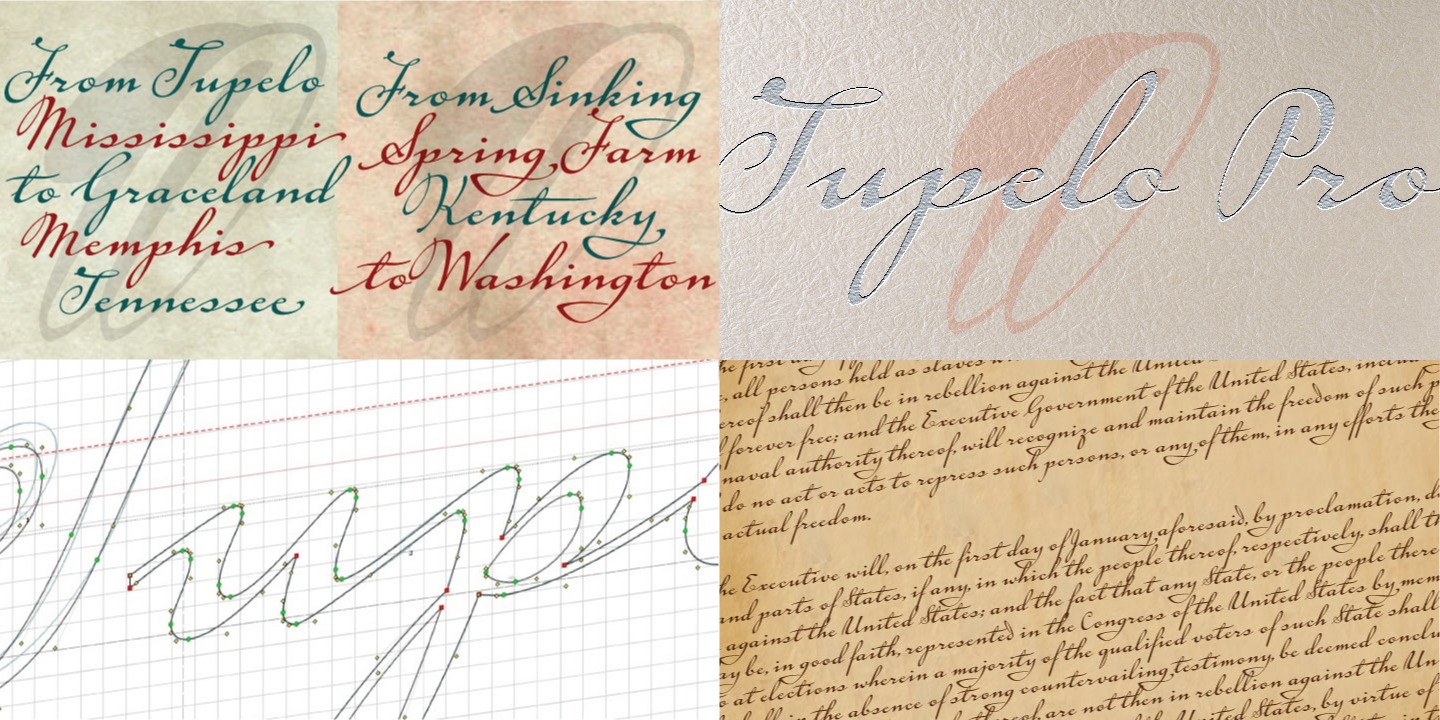 From Tupelo
Mississippi
to Graceland
Memphis
Tennessee
From Sinking
Spring Farm
Kentucky
to Washington
Tupelo Pro
upe
he first day
, all persons held as slaves
ereof shall then be in rebellion against the United
forever free; and the Executive Government of the United States, inclu
naval authority thereof, will recognize and maintain the freedom of such p
do no act or acts to repress such persons, or any of them, in any efforts the
actual freedom.
he Executive will, on the first day of January aforesaid, by proclamation, d
and parts of States, if any, in which the people thereof, respectively, shall th
against the United States; and the fact that any State, or the people there
ay be, in good faith, represented in the Congress of the United States by mem
at elections wherein a majority of the qualified voters of such State shall
in the absence of strong countervailing testimony, be deemed conclu
are not then in rebellion against the Un
States, by virtue of